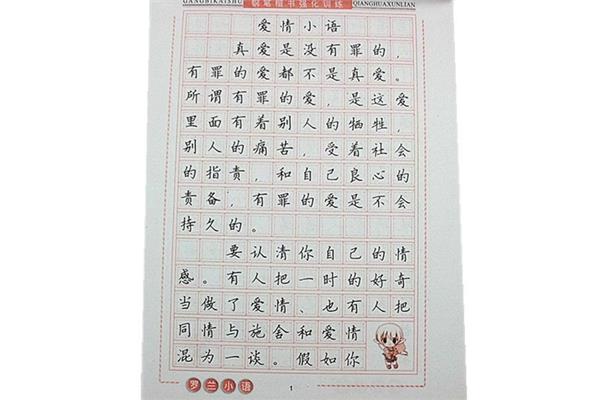 GANGBIKAISHU 钢笔楷书强化训练 QIANGHUAXUNLIAN
爱情小语
真爱是没有罪的，
有罪的爱都不是真爱。
所谓有罪的爱，是这爱
里面有着别人的牺牲，
别人的痛苦，受着社会
的指责，和自己良心的
责备，有罪的爱是不会
持久的。
要认清你自己的情
感。有人把一时的好奇
当做了爱情、也有人把
同情与施舍和爱情
混为一谈。假如你
罗兰小语
1